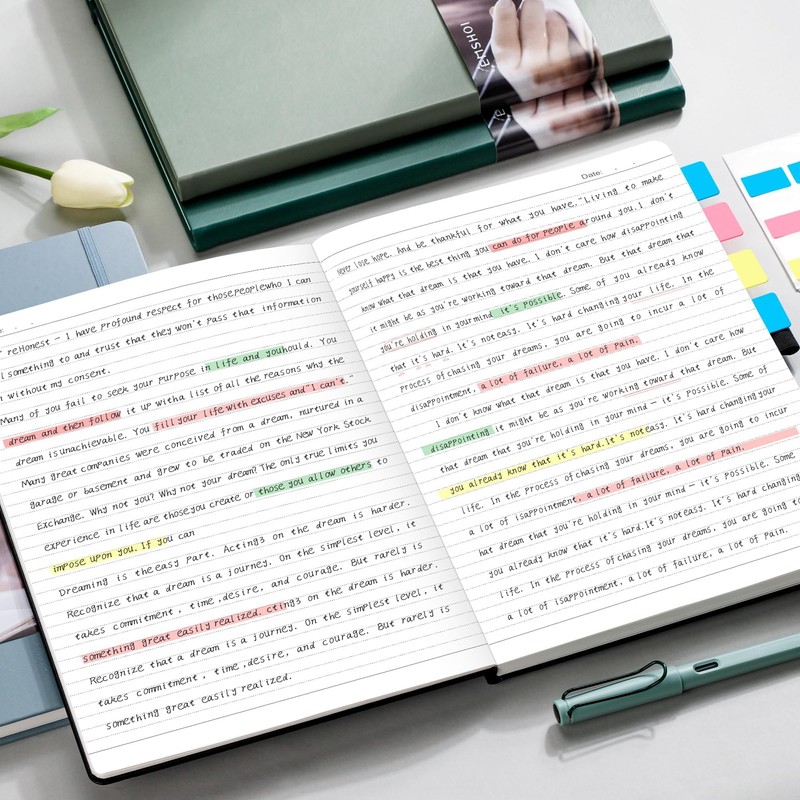 reHonest - I have profound respect for those.Peoplewho I can
something to and trust that they won't pass that information
without my consent.
Many of you fail to seek your purpose in life and youhould. You
dream and then follow it up witha list of all the reasons why the
dream isunachievable. You fill your life with excuses and"I can't."
Many great companies were conceived from a dream, nurtured in a
garage or basement and grew to be traded on the New York Stock
Exchange. Why not you? Why not your dream? The only true limits you
experience in life are thoseyou create or those you allow others to
impose upon you. If you can
Dreaming is the easy part. Acting3 on the dream is harder.
Recognize that a dream is a journey. On the simplest level, it
takes commitment, time ,desire, and courage. But rarely is
something great easily realized. cting3 on the dream is harder.
Recognize that a dream is a journey. On the simplest level, it
takes commitment, time ,desire, and courage. But rarely is
something great easily realized.
Date:
never lose hope. And be thankful for what you have."Living to make
yourself happy is the best thing you can do for people around you.I don't
know what that dream is that you have, I don't care how disappointing
it might be as you're working toward that dream. But that dream that
you're holding in yourmind it's possible. Some of you already know
that it's hard. It's noteasy. It's hard changing your life. In the
process of chasing your dreams, you are going to incur a lot of
disappointment, a lot of failure, a lot of pain.
I don't know what that dream is that you have, I don't care how
disappointing it might be as you're working toward that dream. But
that dream that you're holding in your mind — it's possible. Some of
you already know that it's hard.It's not easy. It's hard changing your
life. In the process of chasing your dreams, you are going to incur
a lot of isappointment, a lot of failure, a lot of pain.
hat dream that you're holding in your mind — it's possible. Some
you already know that it's hard.It's noteasy. It's hard changing
life. In the process of chasing your dreams, you are going to
a lot of isappointment, a lot of failure, a lot of pain.